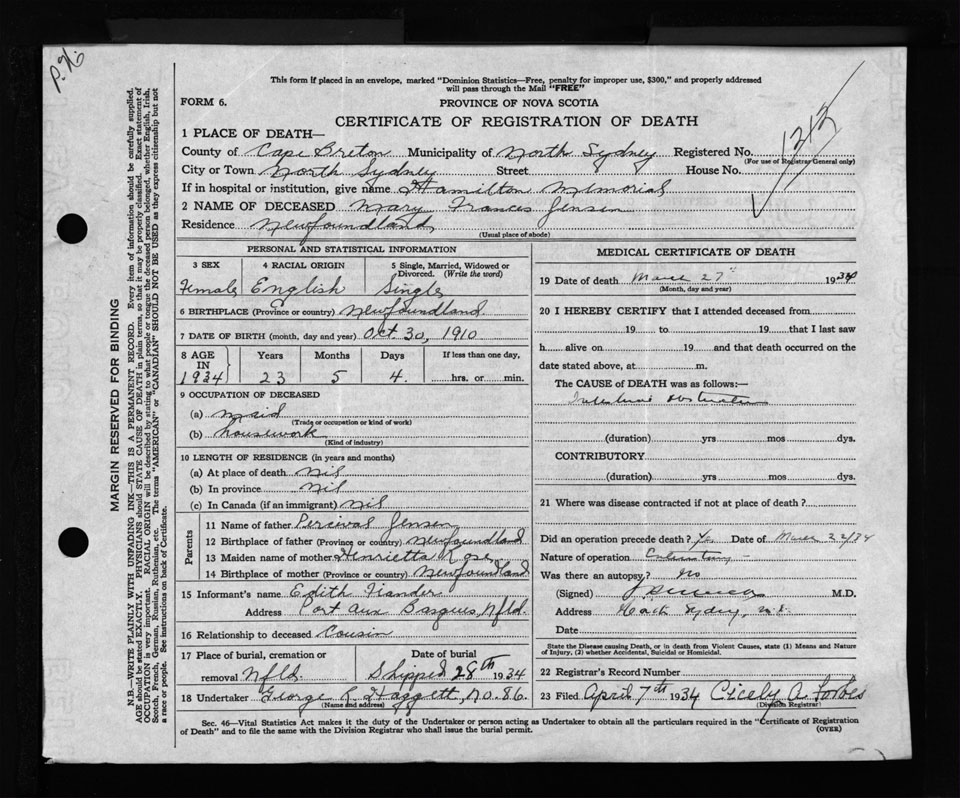 P.N.
This form if placed in an envelope, marked "Dominion Statistics—Free, penalty for improper use, $300," and properly addressed
will pass through the Mail "FREE"
FORM 6.
PROVINCE OF NOVA SCOTIA
CERTIFICATE OF REGISTRATION OF DEATH
1 PLACE OF DEATH—
County of Cape Breton Municipality of North Sydney Registered No.
(For use of Registrar General only)
City or Town North Sydney Street House No.
If in hospital or institution, give name Hamilton Memorial
2 NAME OF DECEASED Mary Frances Jensen
Residence Newfoundland
(Usual place of abode)
PERSONAL AND STATISTICAL INFORMATION
3 SEX 4 RACIAL ORIGIN 5 Single, Married, Widowed or Divorced. (Write the word)
Female English Single
6 BIRTHPLACE (Province or country) Newfoundland
7 DATE OF BIRTH (month, day and year) Oct 30, 1910
8 AGE IN Years Months Days If less than one day,
1934 23 5 4. hrs. or min.
9 OCCUPATION OF DECEASED
(a) Maid
(Trade or occupation or kind of work)
(b) housework
(Kind of industry)
10 LENGTH OF RESIDENCE (in years and months)
(a) At place of death nil
(b) In province nil
(c) In Canada (if an immigrant) nil
Parents
11 Name of father Percival Jensen
12 Birthplace of father (Province or country) Newfoundland
13 Maiden name of mother Henrietta Rose
14 Birthplace of mother (Province or country) Newfoundland
15 Informant's name Edith Fiander
Address Port Aux Basques, Nfld.
16 Relationship to deceased Cousin
17 Place of burial, cremation or removal Nfld. Date of burial Shipped 28th 1934
18 Undertaker George R Haggett, No. 86.
(Name and address)
MEDICAL CERTIFICATE OF DEATH
19 Date of death March 27th 1934
(Month, day and year)
20 I HEREBY CERTIFY that I attended deceased from
19 to 19 that I last saw
h alive on 19 and that death occurred on the
date stated above, at m.
The CAUSE of DEATH was as follows:—
Intestinal obstruction
(duration) yrs mos dys.
CONTRIBUTORY
(duration) yrs mos dys.
21 Where was disease contracted if not at place of death?
Did an operation precede death? Yes Date of March
Nature of operation
Was there an autopsy? no
(Signed) M.D.
Address North Sydney, N.S.
Date
State the Disease causing Death, or in death from Violent Causes, state (1) Means and Nature
of Injury, (2) whether Accidental, Suicidal or Homicidal.
22 Registrar's Record Number
23 Filed April 7th 1934 Cicely A. Forbes
(Division Registrar)
Sec. 46—Vital Statistics Act makes it the duty of the Undertaker or person acting as Undertaker to obtain all the particulars required in the "Certificate of Registration
of Death" and to file the same with the Division Registrar who shall issue the burial permit.
(OVER)
MARGIN RESERVED FOR BINDING
N.B.—WRITE PLAINLY WITH UNFADING INK—THIS IS A PERMANENT RECORD. Every item of information should be carefully supplied.
AGE should be stated EXACTLY. PHYSICIANS should STATE CAUSE OF DEATH in plain terms, so that it may be properly classified. Exact statement of
OCCUPATION is very important. RACIAL ORIGIN will be described by stating to what people or tongue the deceased person belonged, whether English, Irish,
Scotch, French, German, Russian, Ruthenian, etc. The terms "AMERICAN" or "CANADIAN" SHOULD NOT BE USED as they express citizenship but not
a race or people. See instructions on back of Certificate.